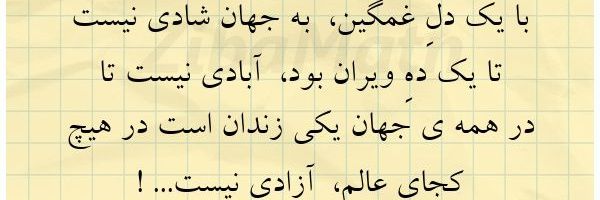 با یک دلِ غمگین، به جهان شادی نیست
تا یک دهِ ویران بود، آبادی نیست تا
در همه ی جهان یکی زندان است در هیچ
کجای عالم، آزادی نیست... !